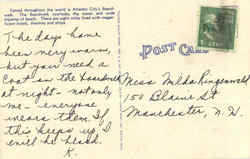 Famed throughout the world is Atlantic City's Board-
walk. The Boardwalk overlooks the ocean and wide
expanse of beach. There are eight miles lined with magni-
ficent hotels, theatres and shops.
The days have
been very warm,
but you need a
coat on the boardwalk
at night - not only
me - everyone
wears them. If
this keeps up, I
will be dead.
K.
POST CARD
Miss Melda Ringenwald
150 Blaine St
Manchester, N. H.